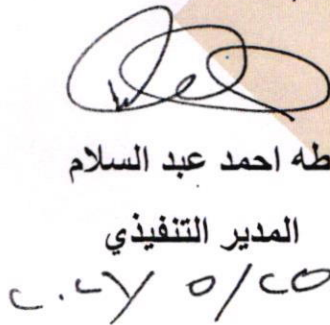 طه احمد عبد السلام
المدير التنفيذي
٥/٢٥